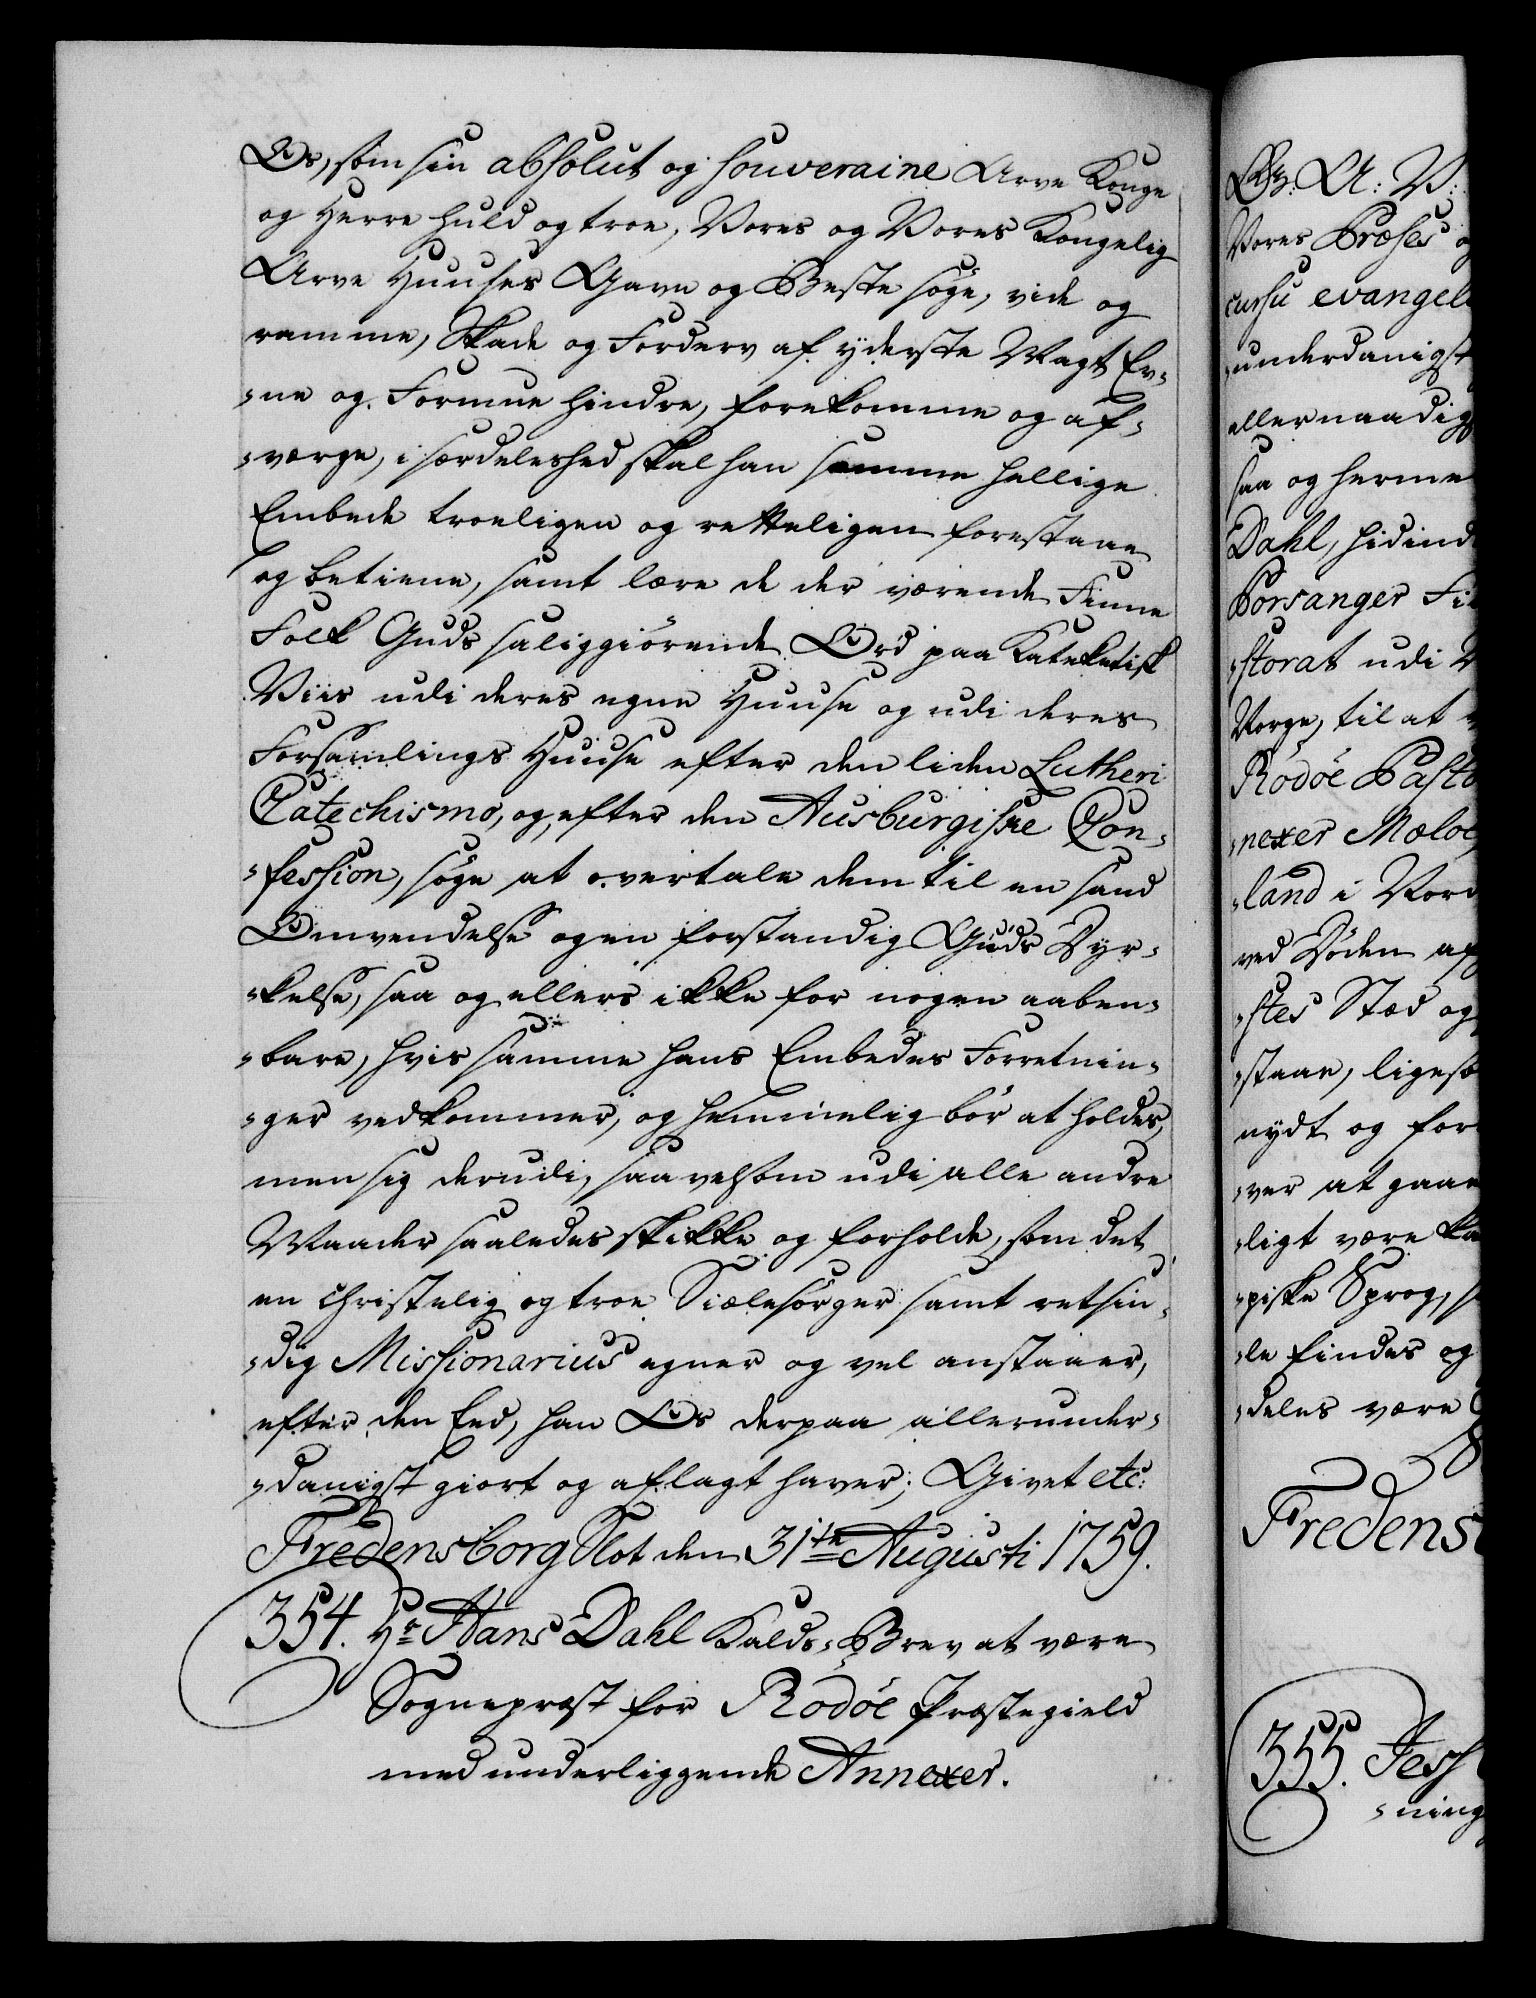 Os, som sin absolut og souveraine Arve Konge
og Herre huld og troe, Vores og Vores Kongelig
Arve Huuses Gavn og Beste søge, vide og
ramme, Skade og Forderv af yderste Magt Ev-
-ne og Formue hindre, forekomme og af-
-værge, i særdeleshed skal han samme hellige
Embede troeligen og retteligen forestaae
og betiene, samt lære de der værende Finne
Folk Guds saliggiørende Ord paa Kateketisk
Viis udi deres egne Huuse og udi deres
Forsamlings Huuse efter den liden Lutheri
Catechismo, og efter den Ausburgiske Con-
-fession, søge at overtale dem til en sand
Omvendelse og en forstandig Guds Dyr-
-kelse, saa og ellers ikke for nogen aaben-
-bare, hvis samme hans Embedes Forretnin-
-ger vedkommer, og hemmelig bør at holdes,
men sig derudi, saavelsom udi alle andre
Maader saaledes skikke og forholde, som det
en christelig og troe Siælesørger samt retsin-
-dig Missionarius egner og vel anstaaer,
efter den Eed, han Os derpaa allerunder-
-danigst giort og aflagt haver; Givet etc:
Fredensborg Slot den 31te Augusti 1759.
354. Hr Hans Dahl Kalds-Brev at være
Sognepræst for Rodøe Præstegield
med underliggende Annexer.
Gr: A: V:
Vores Præses
cursu evangel
-underdanigst
allernaadig
saa og herme
Dahl, hidind
Porsanger Fi
-storat udi
Norge, til at
Rodøe Pasto
-nexer Meløe
-land i Nord
ved Døden af
-stes Stæd og
-staae, ligesa
nydt og for
-ver at gaae
-ligt være
-piske Sprog,
-le findes og
-deles være
Fredens
355. Jess
-ning